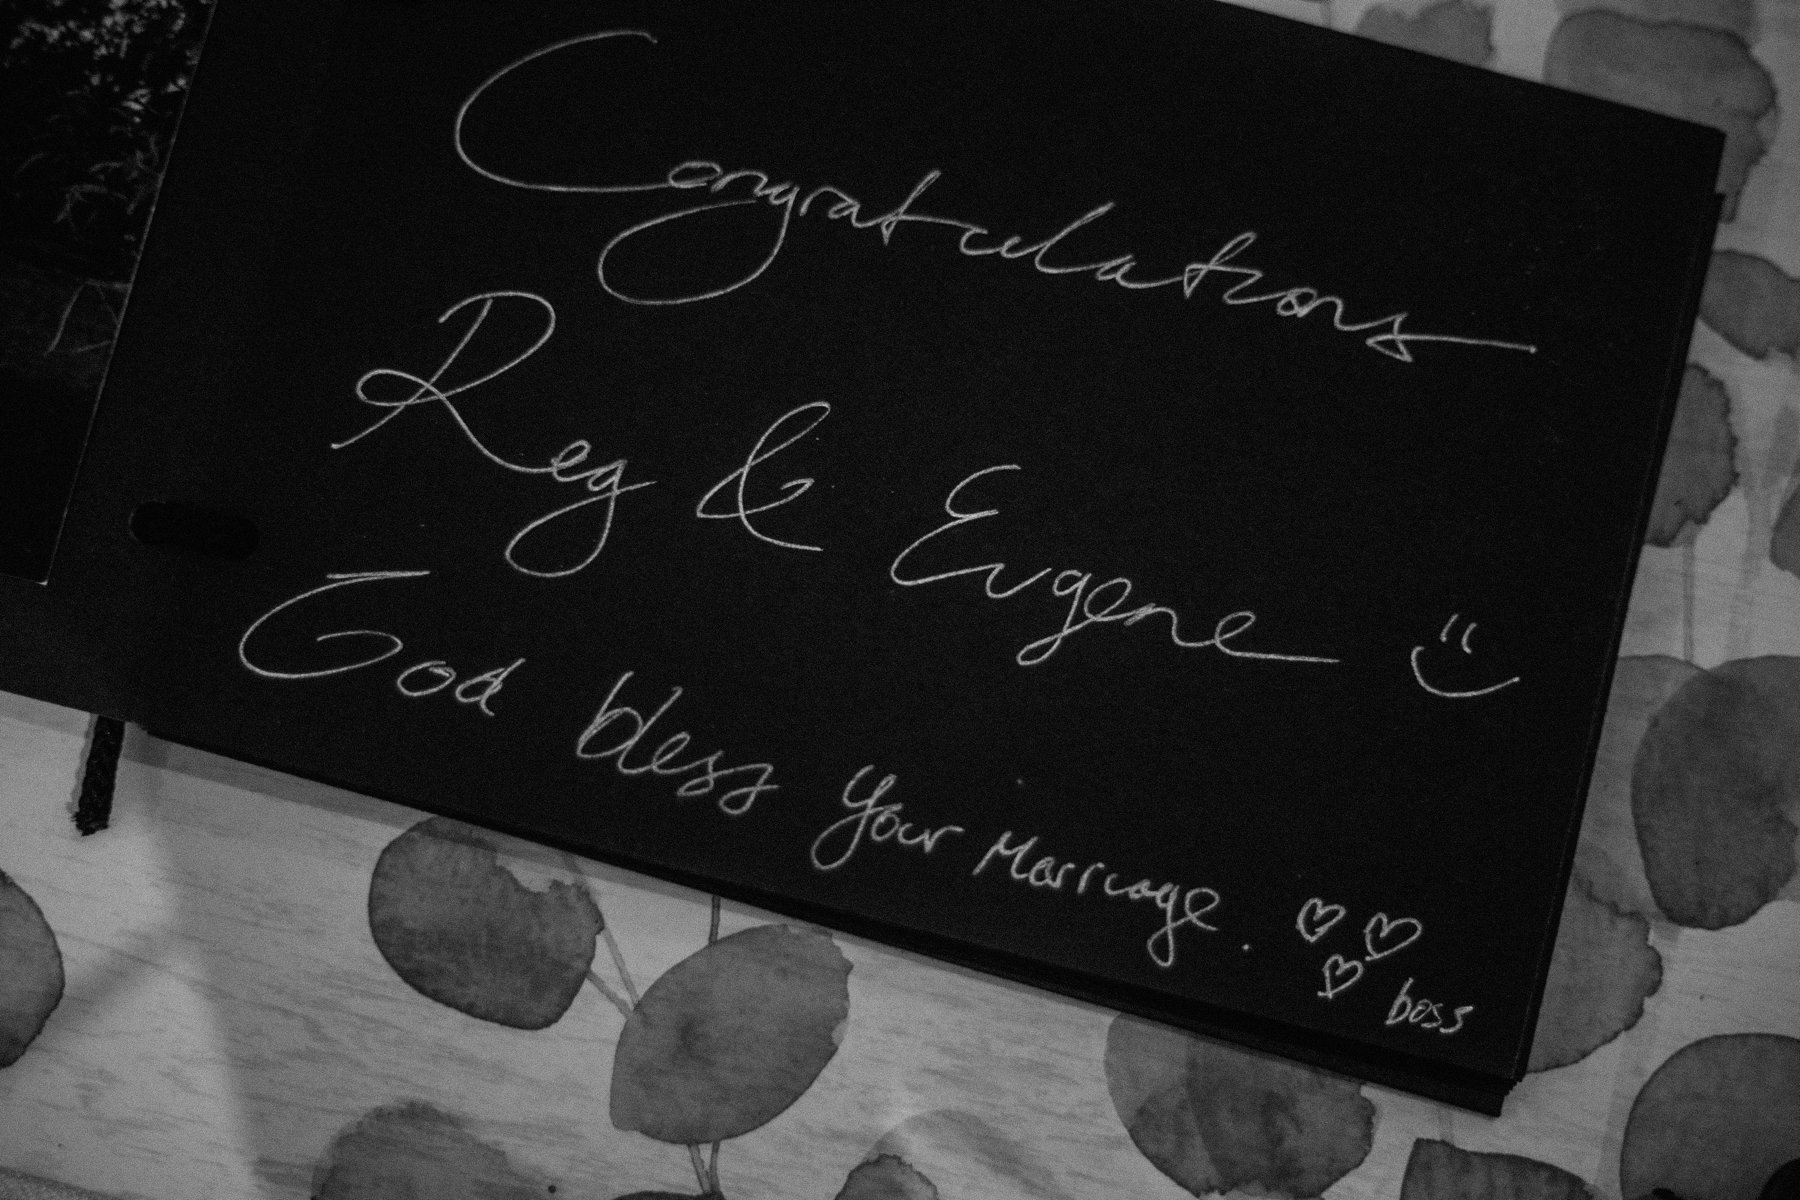 Congratulations
Reg & Eugene
God bless your Marriage.
boss